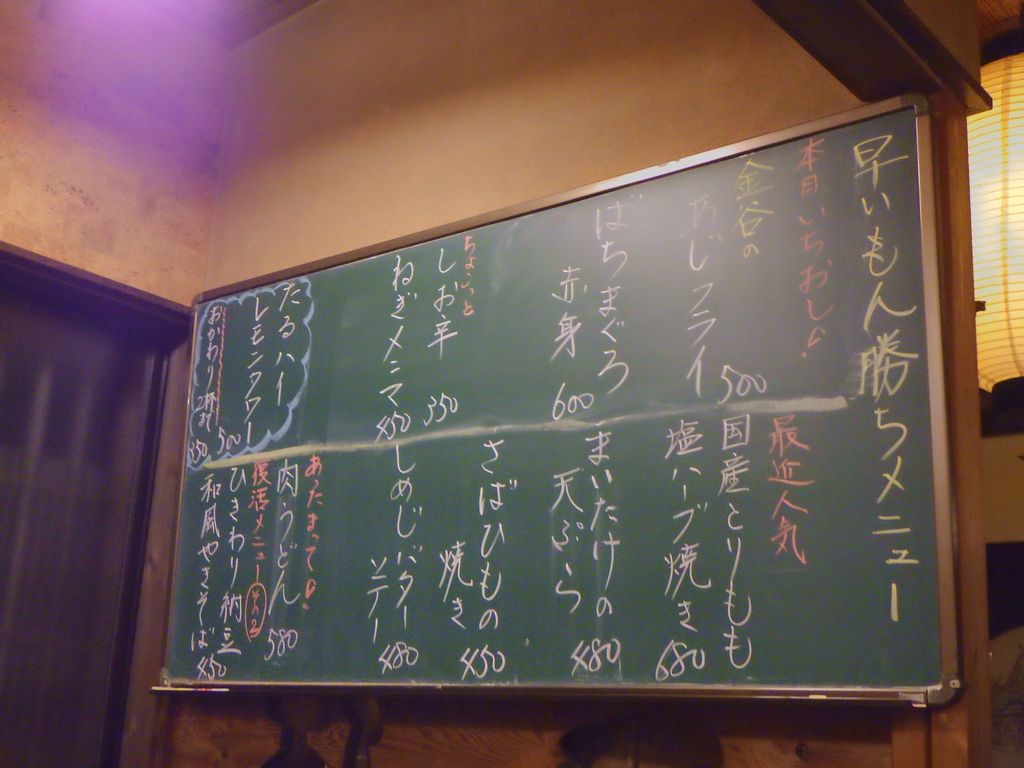 早いもん勝ちメニュー
本日いちおし♪
金谷の
あじフライ
500
ばちまぐろ
赤身 600
ちょこっと
しお辛 350
ねぎメンマ 450
たるハイ
レモンタワー 500
おかわり一杯 350
最近人気
国産とりもも
塩ハーブ焼き 680
まいたけの
天ぷら 480
さばひもの
焼き 450
しめじバター
ソテー 480
あったまって♪
肉うどん 580
復活メニュー その2
ひきわり納豆
和風やきそば 450